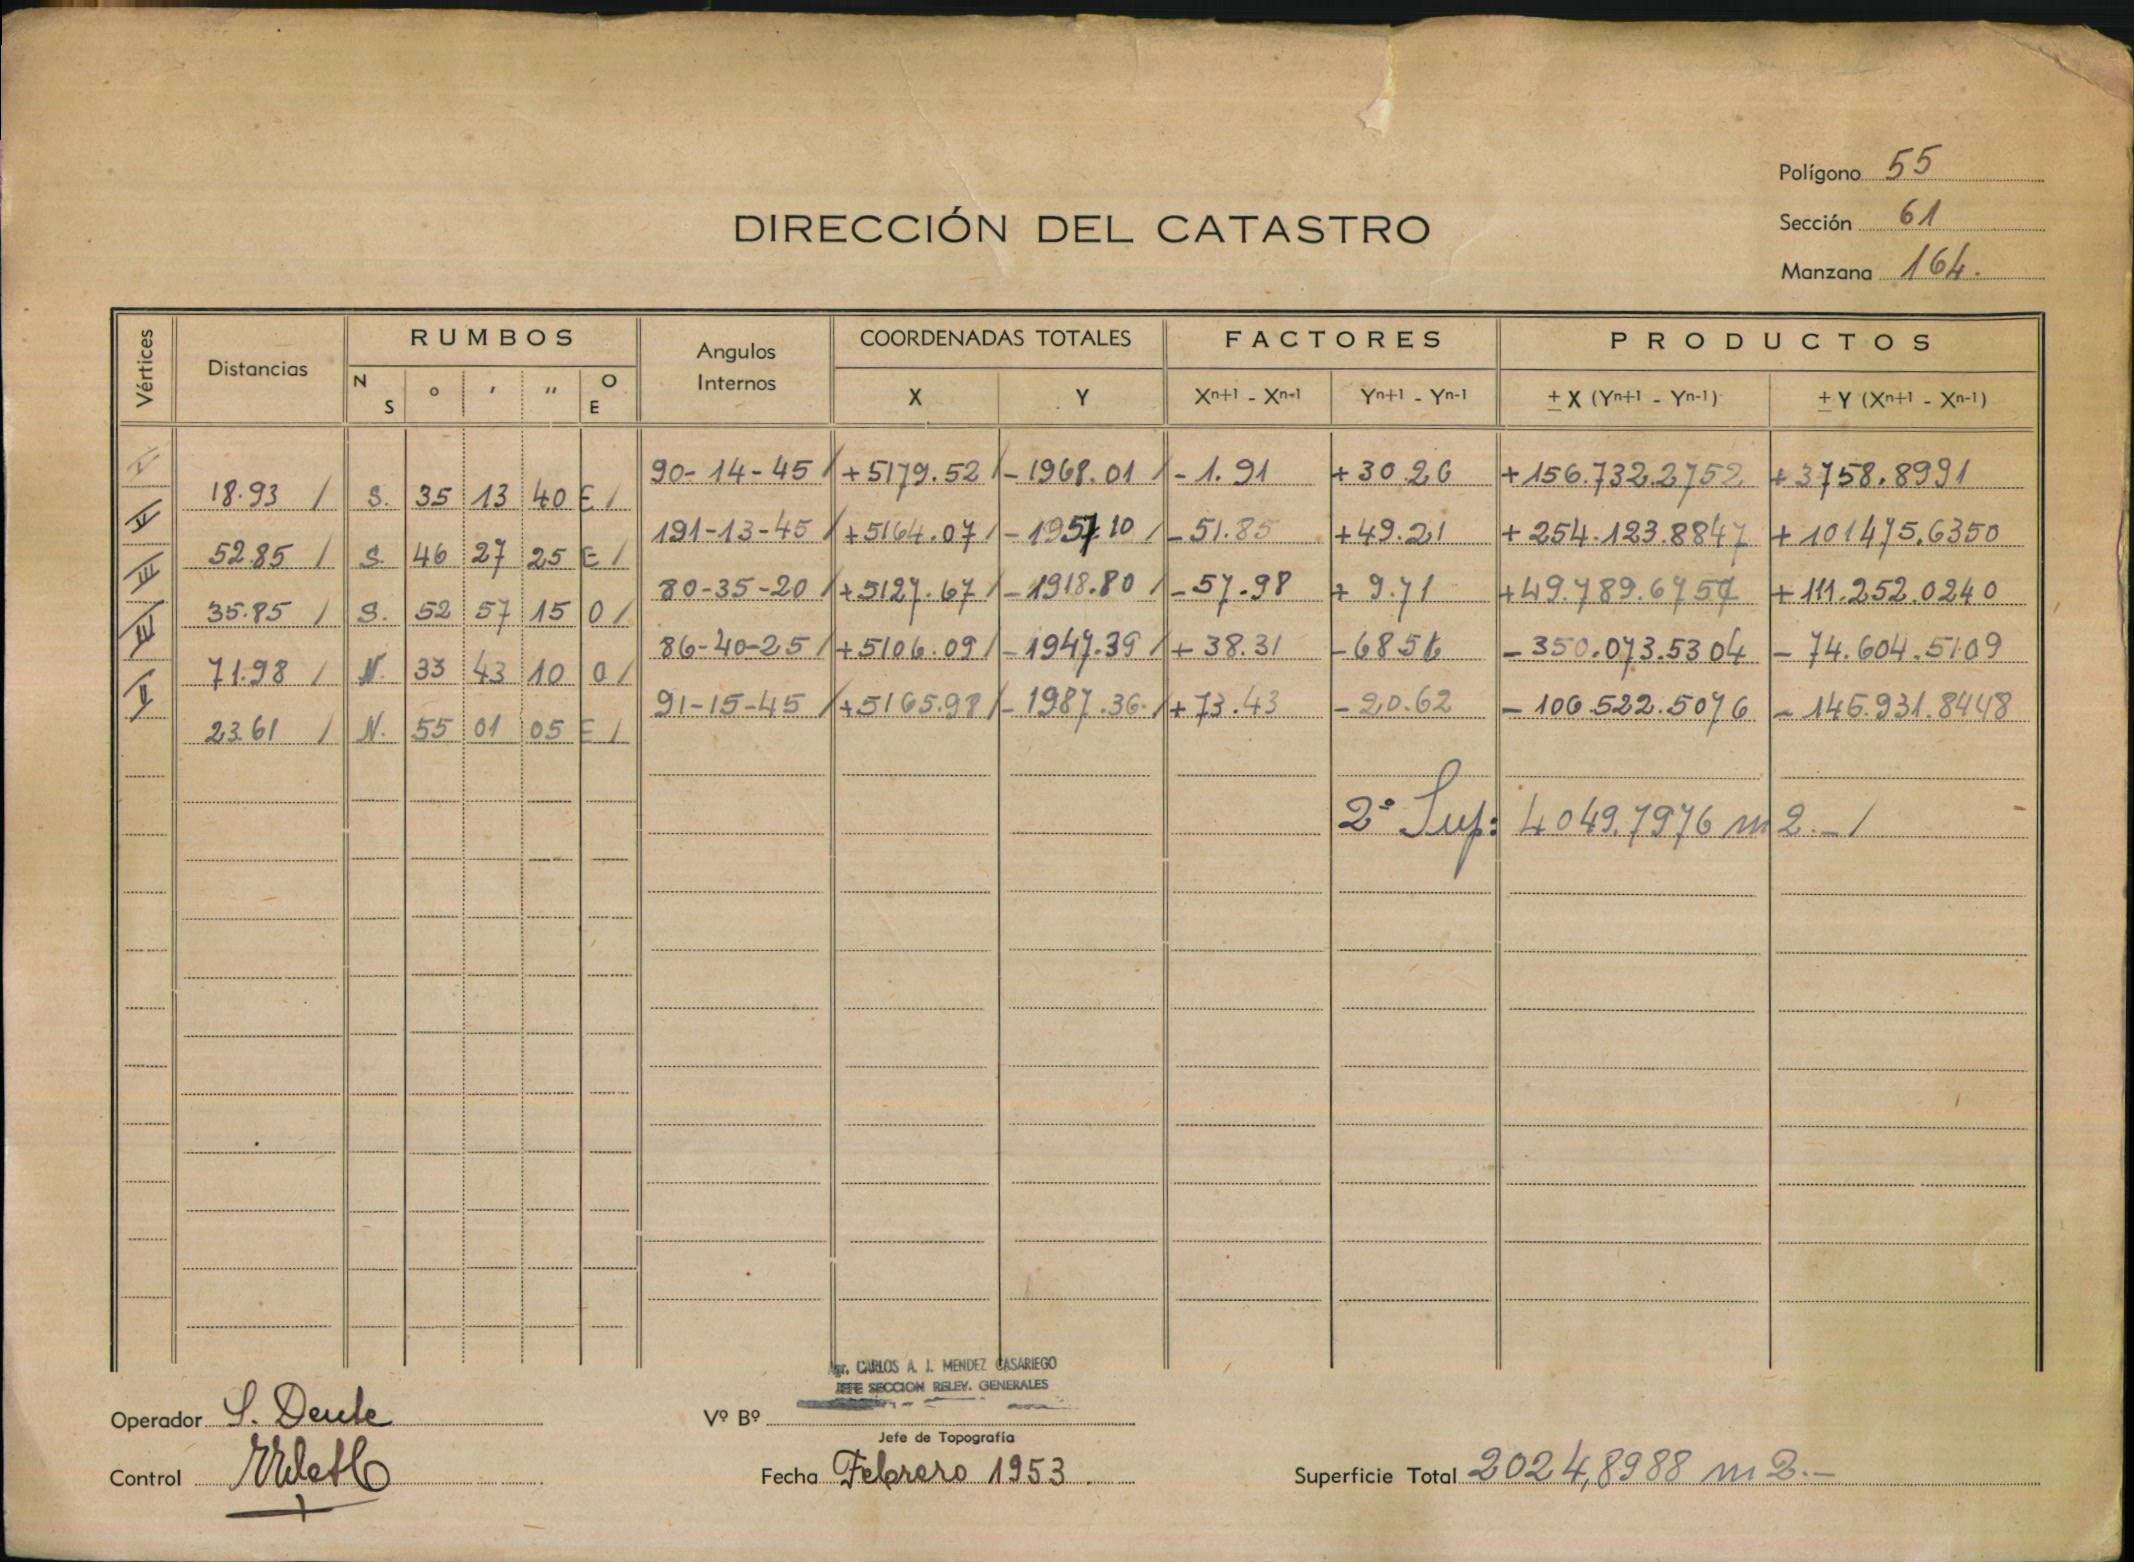 Polígono 55
DIRECCIÓN DEL CATASTRO
Sección 61
Manzana 164.
Vértices Distancias RUMBOS Angulos Internos COORDENADAS TOTALES FACTORES PRODUCTOS
N S ° ' " O E X Y Xn+1 - Xn-1 Yn+1 - Yn-1 ± X (Yn+1 - Yn-1) ± Y (Xn+1 - Xn-1)
I 90-14-45 / +5179.52 / -1968.01 / -1.91 +30.26 +156.732.2752 +3758.8991
18.93 / S. 35 13 40 E /
II 191-13-45 / +5164.07 / -1957.10 / -51.85 +49.21 +254.123.8847 +101475.6350
52.85 / S. 46 27 25 E /
III 80-35-20 / +5127.67 / -1918.80 / -57.98 +9.71 +49.789.6757 +111.252.0240
35.85 / S. 52 57 15 O /
IV 86-40-25 / +5106.09 / -1947.39 / +38.31 -68.56 -350.073.5304 -74.604.5109
71.98 / N. 33 43 10 O /
V 91-15-45 / +5165.98 / -1987.36. / +73.43 -20.62 -106.522.5076 -145.931.8448
23.61 / N. 55 01 05 E /
2° Sup: 4049.7976 m2.- /
Agr. CARLOS A. J. MENDEZ CASARIEGO
JEFE SECCION RELEV. GENERALES
Operador S. Deule
Vº Bº
Jefe de Topografía
Control
Fecha Febrero 1953
Superficie Total 2024,8988 m2.-